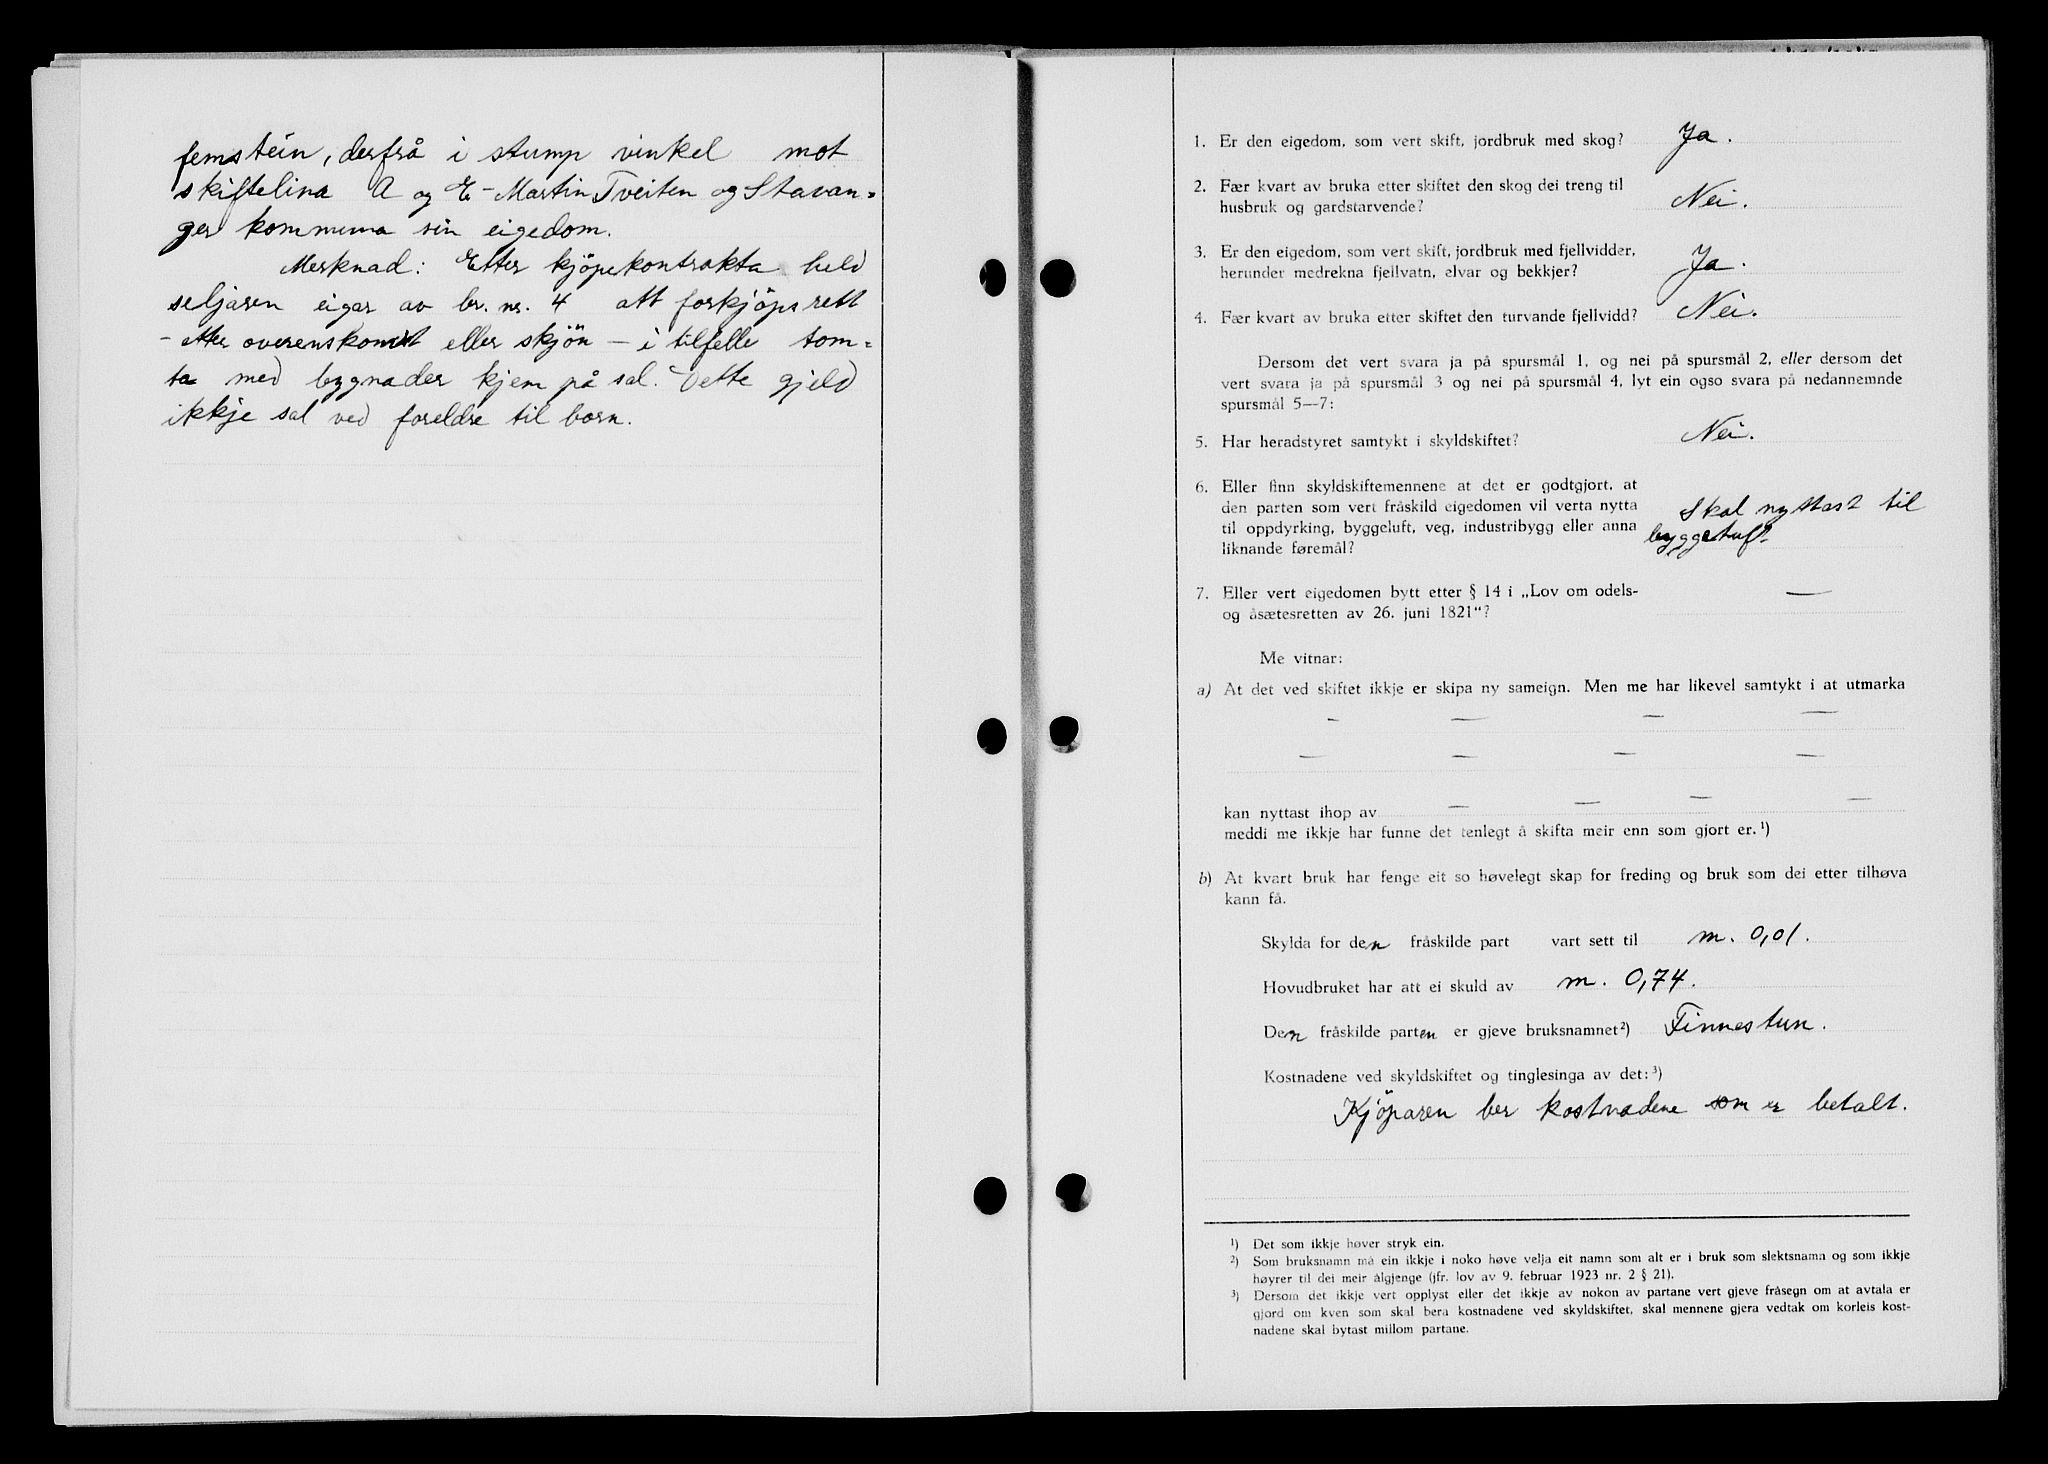 femstein, derfrå i stump vinkel mot
skiftelina A og E – Martin Tveiten og Stavan=
ger kommuna sin eigedom.
Merknad: Etter kjöpekontrakta held
seljaren eigar av br. nr. 4 att forkjöpsrett
– etter overenskomst eller skjön – i tilfelle tom=
ta med bygnader kjem på sal. Dette gjeld
ikkje sal ved foreldre til born.
1. Er den eigedom, som vert skift, jordbruk med skog? Ja.
2. Fær kvart av bruka etter skiftet den skog dei treng til
husbruk og gardstarvende? Nei.
3. Er den eigedom, som vert skift, jordbruk med fjellvidder,
herunder medrekna fjellvatn, elvar og bekkjer? Ja.
4. Fær kvart av bruka etter skiftet den turvande fjellvidd? Nei.
Dersom det vert svara ja på spursmål 1, og nei på spursmål 2, eller dersom det
vert svara ja på spursmål 3 og nei på spursmål 4, lyt ein også svara på nedannemnde
spursmål 5—7:
5. Har heradstyret samtykt i skyldskiftet? Nei.
6. Eller finn skyldskiftemennene at det er godtgjort, at
den parten som vert fråskild eigedomen vil verta nytta
til oppdyrking, byggeluft, veg, industribygg eller anna
liknande føremål? Skal nyttast til
byggetuft
7. Eller vert eigedomen bytt etter § 14 i „Lov om odels-
og åsætesretten av 26. juni 1821"? —
Me vitnar:
a) At det ved skiftet ikkje er skipa ny sameign. Men me har likevel samtykt i at utmarka
— — — —
— — — —
kan nyttast ihop av — — — —
meddi me ikkje har funne det tenlegt å skifta meir enn som gjort er.¹)
b) At kvart bruk har fenge eit so høvelegt skap for freding og bruk som dei etter tilhøva
kann få.
Skylda for den fråskilde part vart sett til m. 0,01.
Hovudbruket har att ei skuld av m. 0,74.
Den fråskilde parten er gjeve bruksnamnet²) Finnestun.
Kostnadene ved skyldskiftet og tinglesinga av det:³)
Kjöparen ber kostnadene som er betalt.
¹) Det som ikkje høver stryk ein.
²) Som bruksnamn må ein ikkje i noko høve velja eit namn som alt er i bruk som slektsnamn og som ikkje
høyrer til dei meir ålgjenge (jfr. lov av 9. februar 1923 nr. 2 § 21).
³) Dersom det ikkje vert opplyst eller det ikkje av nokon av partane vert gjeve fråsegn om at avtala er
gjord om kven som skal bera kostnadene ved skyldskiftet, skal mennene gjera vedtak om korleis kost-
nadene skal bytast millom partane.